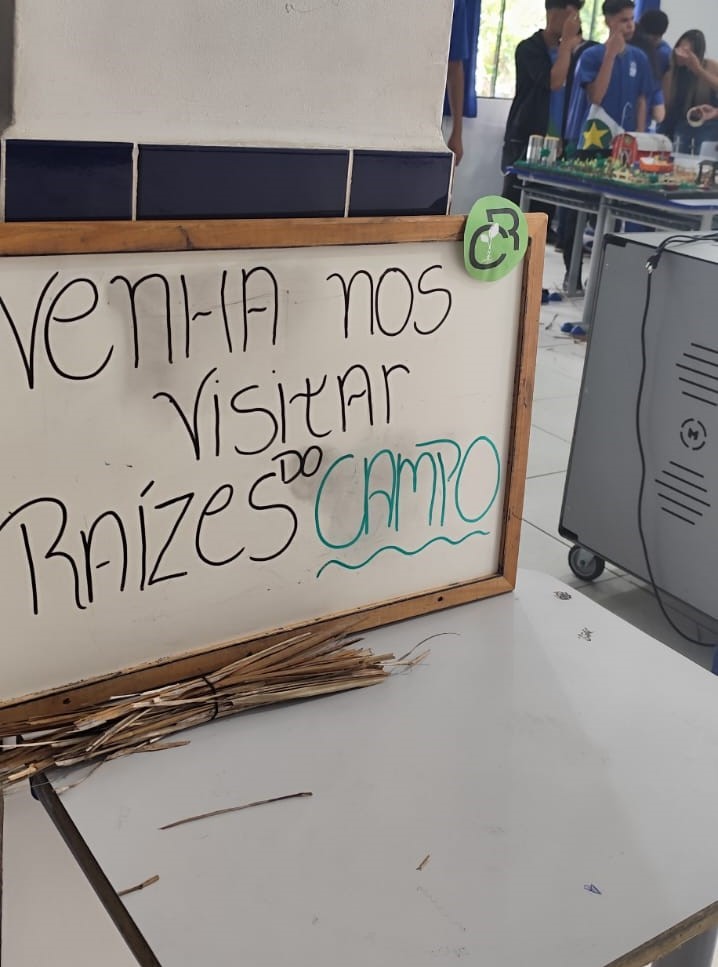 CR
VENHA NOS
VISITAR
RAÍZES DO CAMPO